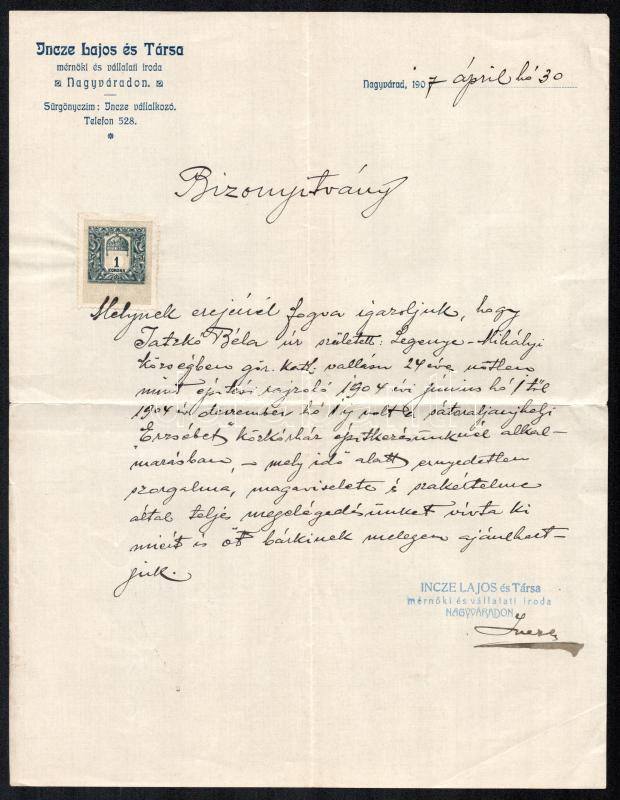 Incze Lajos és Társa
mérnöki és vállalati iroda
Nagyváradon.
Sürgönyczim: Incze vállalkozó.
Telefon 528.
Nagyvárad, 1907 ápril hó 30
Bizonyitvány
1
KORONA
Melynek erejénél fogva igazoljuk, hogy
Tatzkó Béla úr született: Legenye-Mihályi
községben gör. kath. vallásu 24 éves nőtlen
mint épitési rajzoló 1904 évi junius hó 1 től
1904 év deczember hó 1 ig volt a sátoraljaujhelyi
"Erzsébet" közkórház épitkezésünknél alkal-
mazásban, - mely idő alatt ernyedetlen
szorgalma, magaviselete és szakértelme
által teljes megelégedésünket vivta ki
miért is őt bárkinek melegen ajánlhat-
juk.
INCZE LAJOS és Társa
mérnöki és vállalati iroda
NAGYVÁRADON
Incze